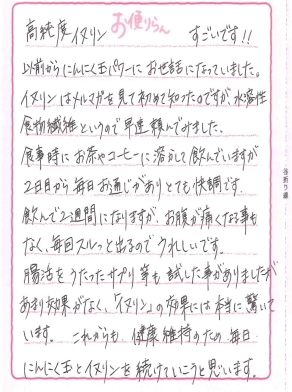 お便りらん
高純度イヌリン　すごいです!!
以前からにんにく玉パワーにお世話になっていました。
イヌリンはメルマガを見て初めて知ったのですが水溶性
食物繊維というので早速頼んでみました。
食事時にお茶やコーヒーに溶かして飲んでいますが
2日目から毎日お通じがありとても快調です。
飲んで2週間になりますが、お腹が痛くなる事も
なく、毎日スルっと出るのでうれしいです。
腸活をうたったサプリ等も試した事がありましたが
あまり効果がなく、「イヌリン」の効果には本当に驚いて
います。これからも、健康維持のため、毎日
にんにく玉とイヌリンを続けていこうと思います。